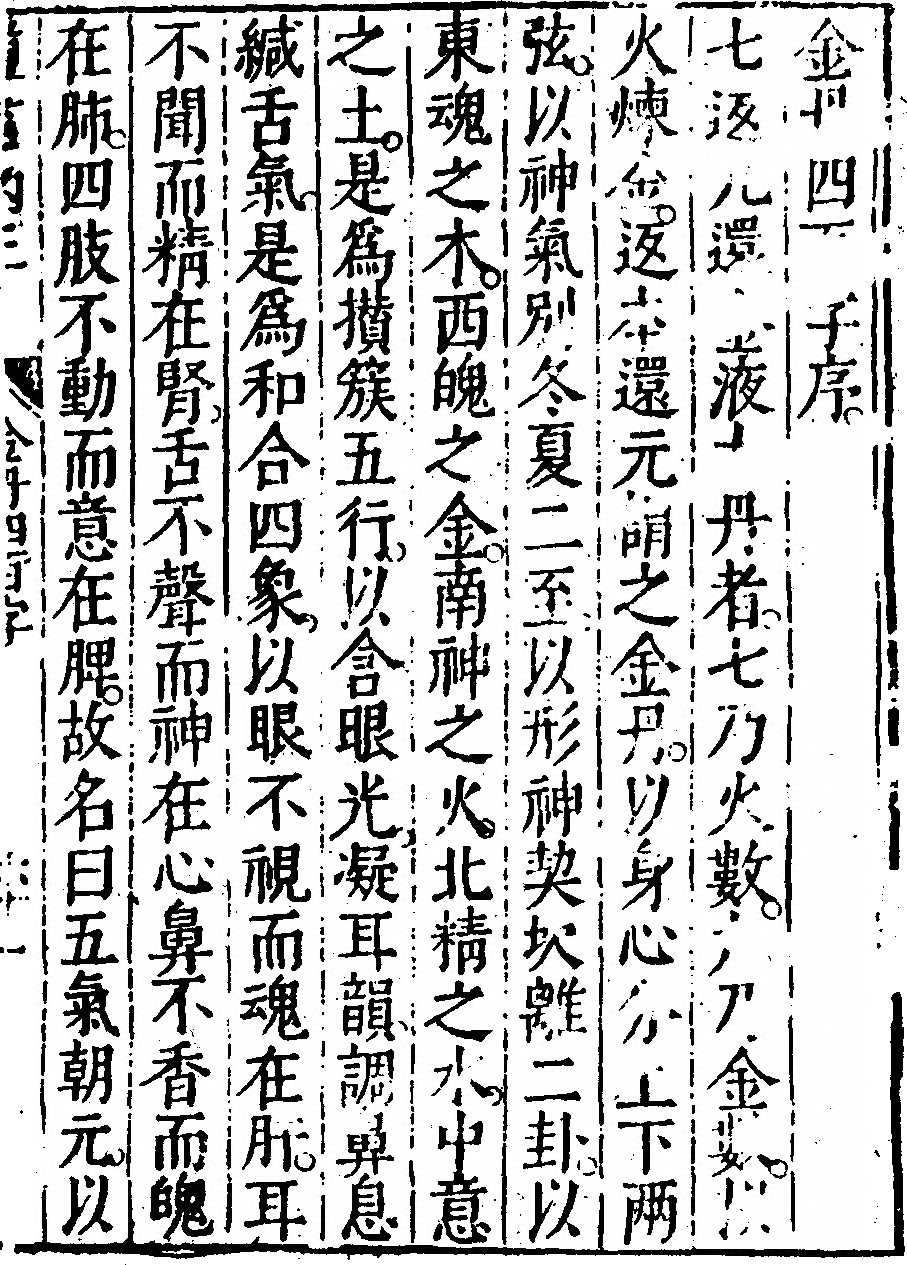 金丹四百字序
七返九還金液大丹者。七乃火數。九乃金數。以
火煉金。返本還元謂之金丹。以身心分上下兩
弦。以神氣別冬夏二至以形神契坎離二卦。以
東魂之木。西魄之金。南神之火。北精之水。中意
之土。是爲攢簇五行。以含眼光凝耳韻調鼻息
緘舌氣。是爲和合四象。以眼不視而魂在肝。耳
不聞而精在腎。舌不聲而神在心鼻不香而魄
在肺。四肢不動而意在脾。故名曰五氣朝元。以
金丹四百字